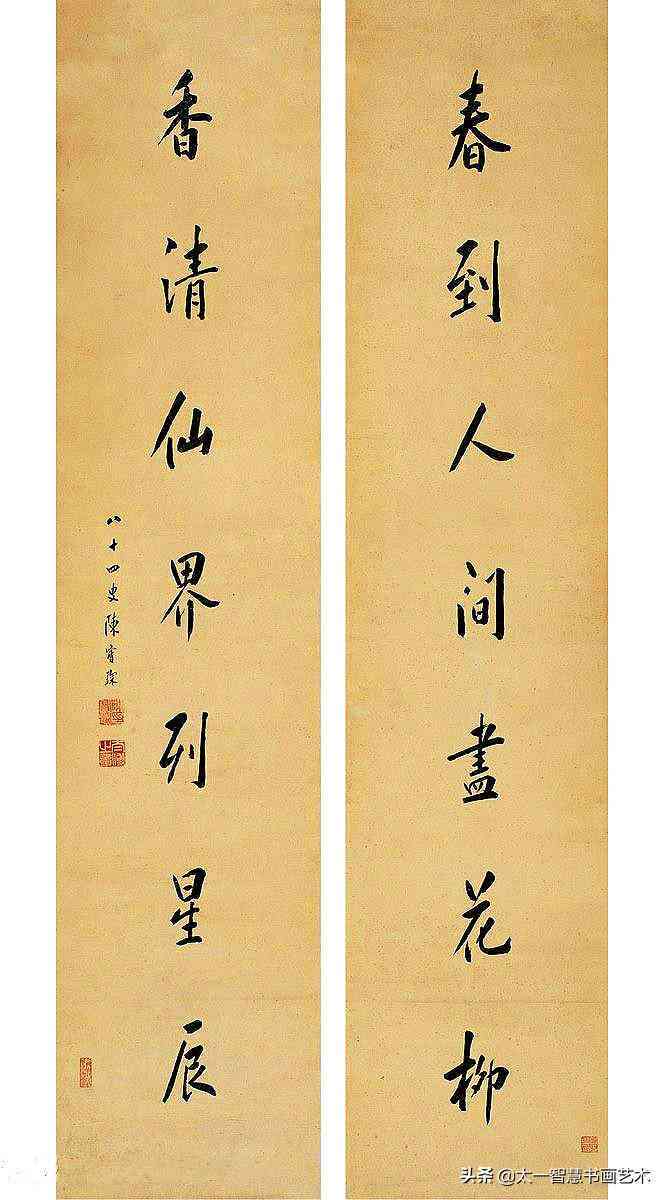 春到人间盡花柳
香清仙界列星辰
八十四叟陳寶琛
头条 @太一智慧书画艺术